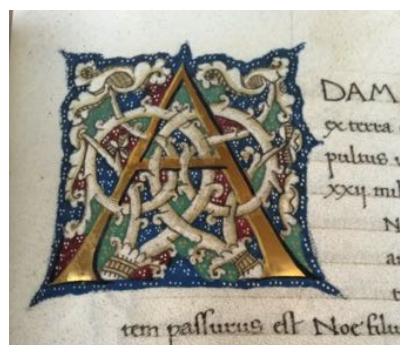 A
DAM
ex terra
pultus
xxij mil
N
a
t
tem passurus est Noe filiu